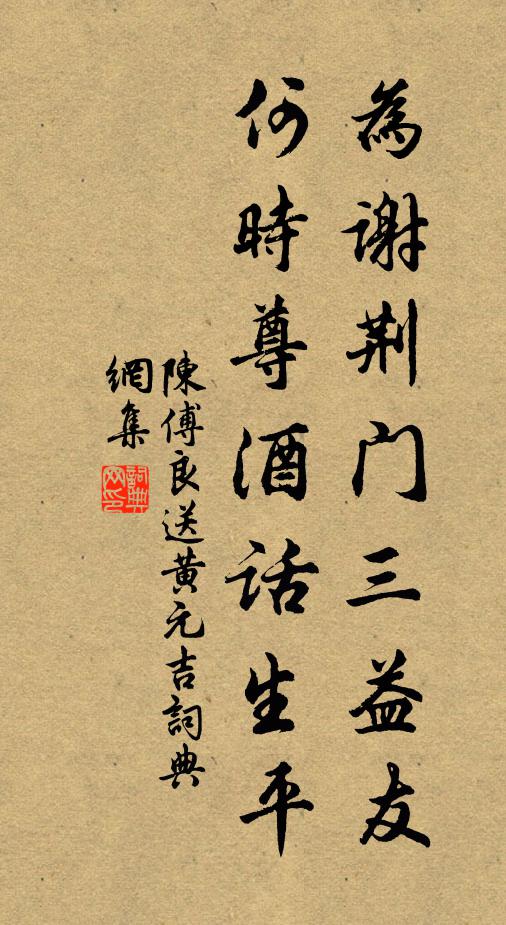 為谢荆门三益友
何時尊酒话生平
陳傅良送黄元吉詞典
網集
詞典
网印